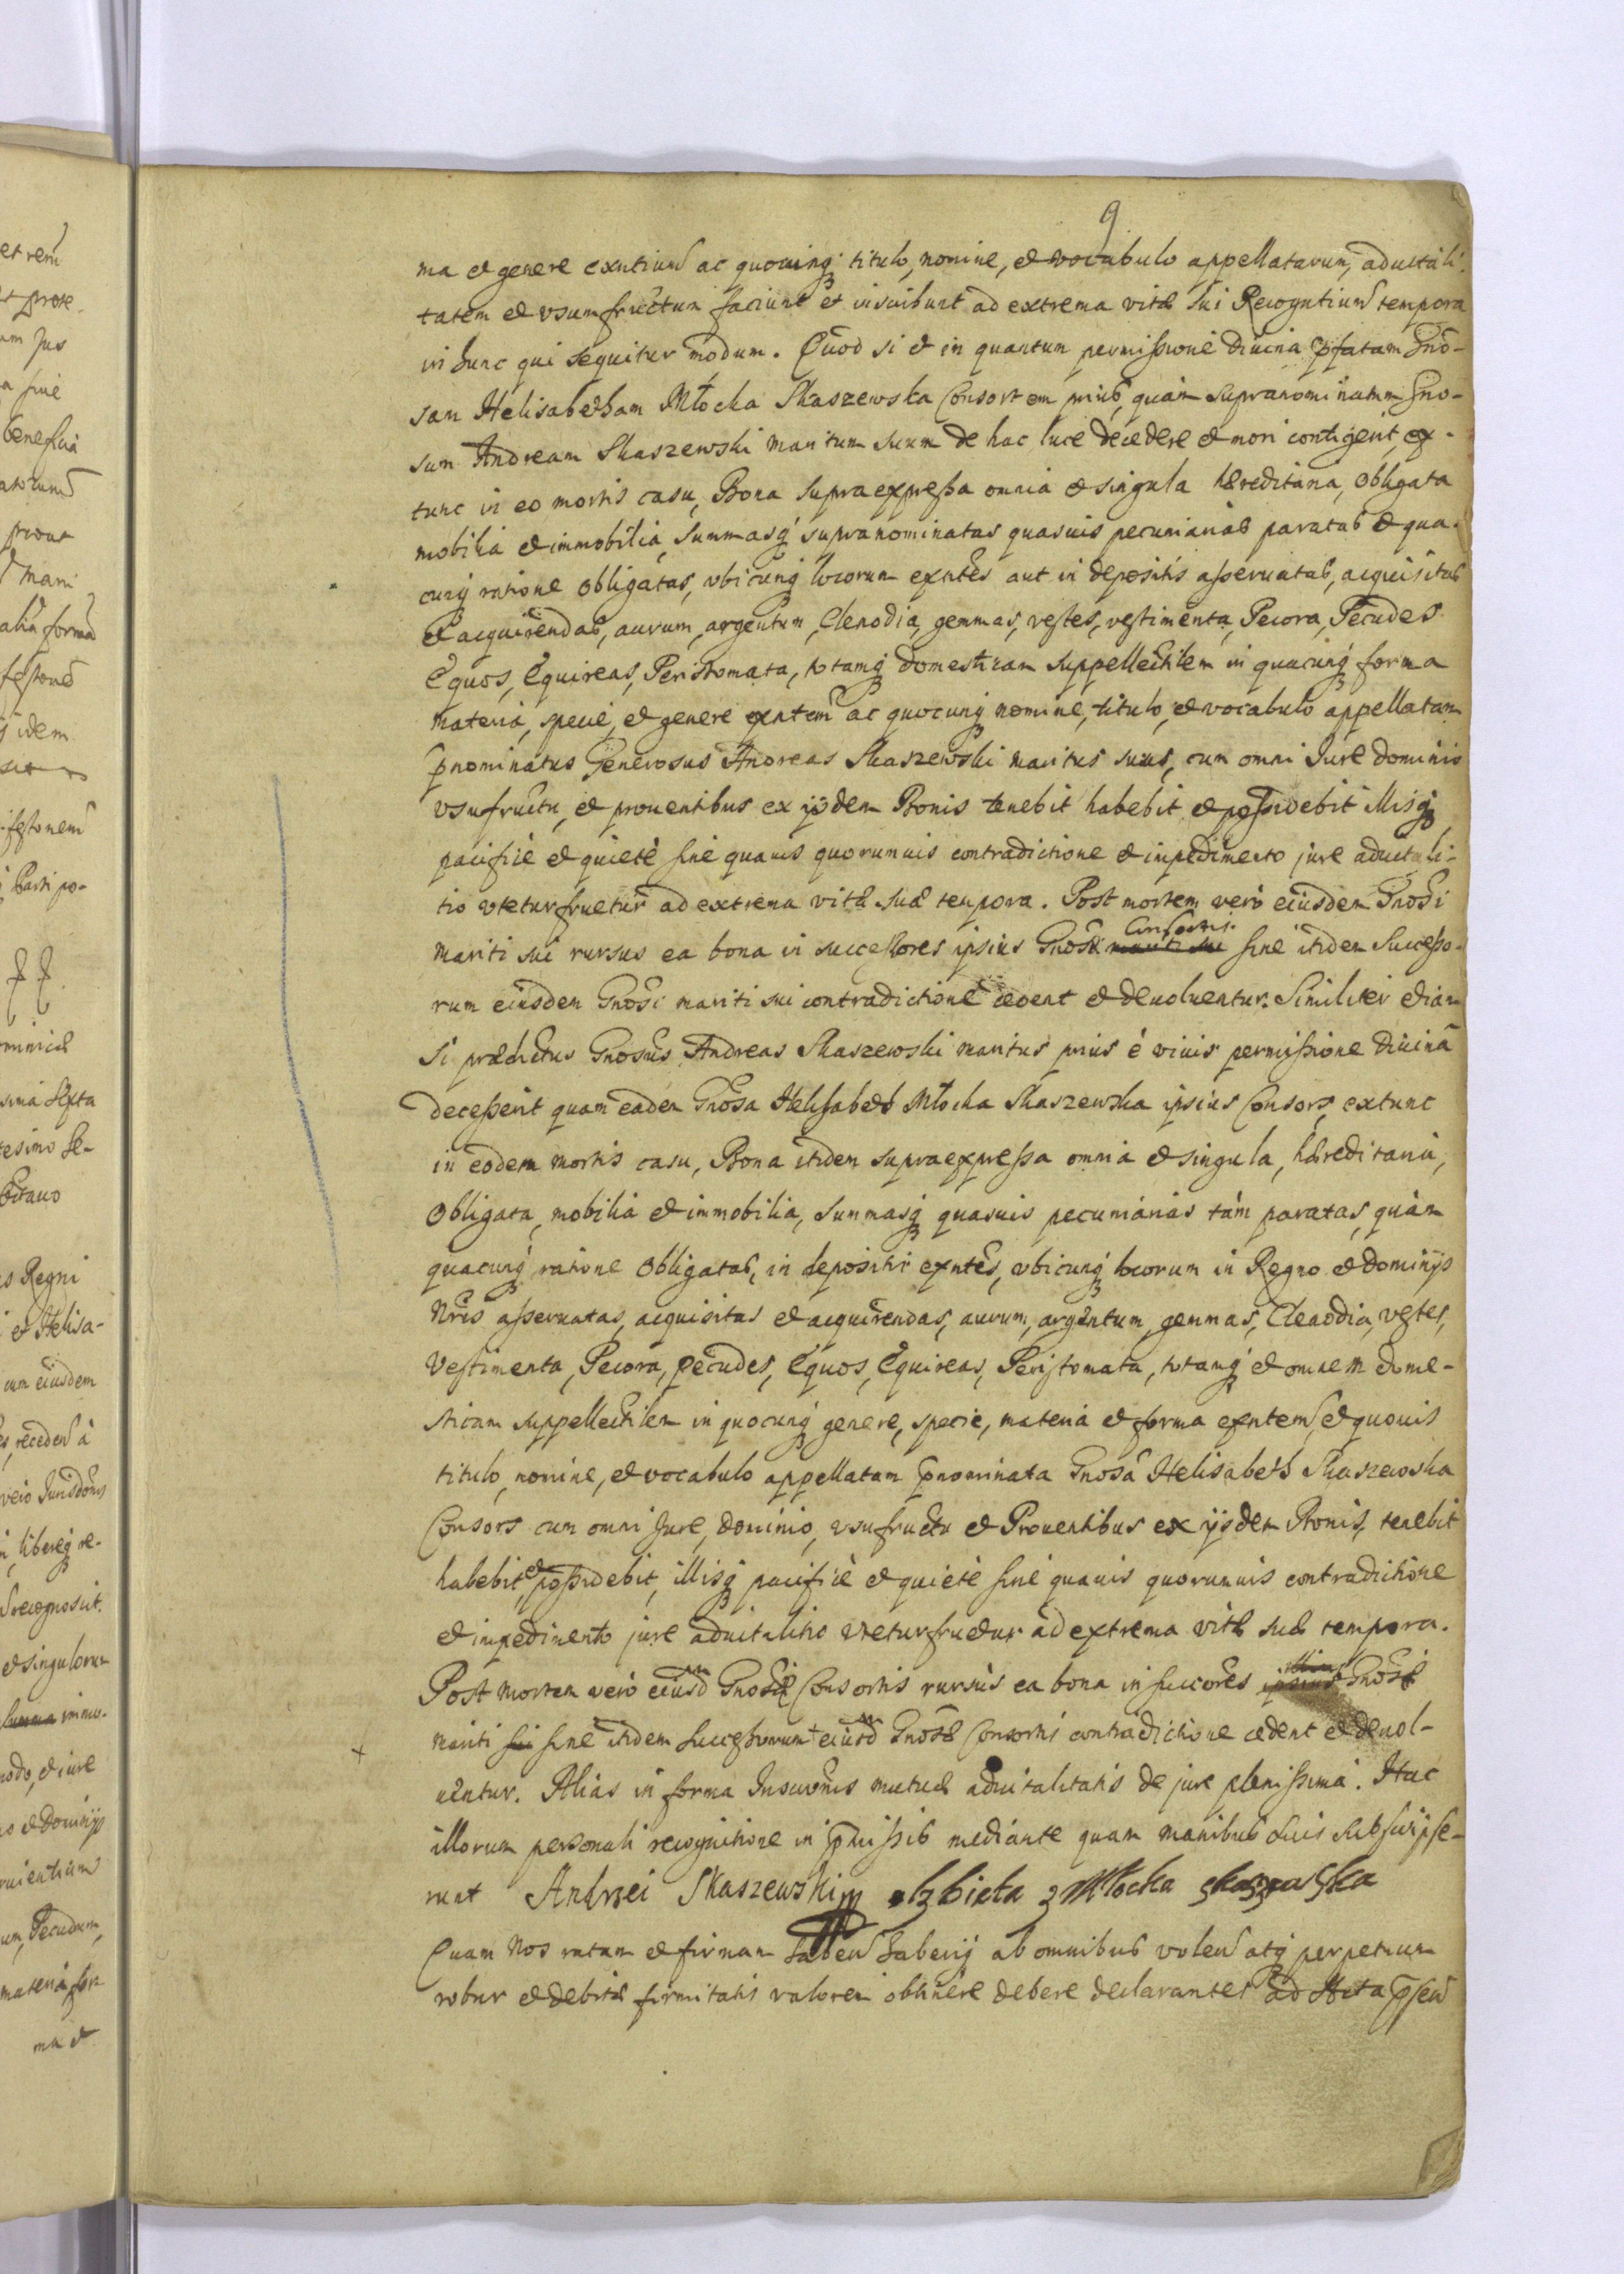 9
ma et genere exntium ac quovinq titulo, nomine, et vocabulo appellatarum, aduitali-
tatem et vsumfructum faciunt et inscribunt ad extrema vitæ sui Recogntium tempora
in hunc qui sequitur modum. Quod si et in quantum permissione diuina pfatam Gno-
sam Helisabetham Młocka Skaszewska Consortem prius, quam supranominatum Gno-
sum Andream Skaszewski maritum suum de hac luce decedere et mori contigerit, ex-
tunc in eo mortis casu, Bona supraexpressa omnia et singula hæreditaria, obligata
mobilia et immobilia, summasq supranominatas quasuis pecuniarias paratas et qua-
cunq ratione obligatas, vbicunq locorum exntes aut in depositis asseruatas, acquisitas
et acquirendas, aurum, argentum, Clenodia, gemmas, vestes, vestimenta, Pecora, Pecudes
Equos, Equireas, Peristomata, totamq domesticam suppellectilem in quacunq forma
materia, specie, et genere exntem ac quocunq nomine, titulo, et vocabulo appellatam
pnominatus Generosus Andreas Skaszewski maritus suus, cum omni Iure dominio
vsufructu, et prouentibus ex ijsdem Bonis tenebit habebit et possidebit illisq
pacifice et quiete sine quauis quorumuis contradictione et impedimento jure aduitali-
tio vtetur fruetur ad extrema vitæ suæ tempora. Post mortem vero eiusdem Gnosi
mariti sui rursus ea bona in successores ipsius Gnosæ mariti sui Consortis sine itidem Successo-
rum eiusdem Gnosi mariti sui contradictione cedent et deuoluentur. Similiter etiam
Si prædictus Gnosus Andreas Skaszewski maritus prius è viuis permissione diuinâ
decesserit quam eadem Gnosa Helisabeth Młocka Skaszewska ipsius Consors, extunc
in eodem mortis casu, Bona itidem supraexpressa omnia et singula, hæreditaria,
Obligata, mobilia et immobilia, summasq quasuis pecuniarias tàm paratas, quàm
quacunq ratione obligatas, in depositis exntes, vbicunq locorum in Regno et dominijs
Nris asseruatas, acquisitas et acquirendas, aurum, argentum, gemmas, Clenodia, vestes,
Vestimenta, Pecora, pecudes, Equos, Equireas, Peristomata, totamq et omnem dome-
sticam suppellectilem in quocunq genere, specie, materia et forma exntem, et quouis
titulo, nomine, et vocabulo appellatam pnominata Gnosa Helisabeth Skaszewska
Consors cum omni Jure, dominio, vsufructu et Prouentibus ex ijsdem Bonis, tenebit
habebit, et possidebit, illisq pacifice et quiete sine quauis quorumuis contradictione
et impedimento jure aduitalitio vtetur fruetur ad extrema vitæ suæ tempora.
Post mortem vero eiusd Gnosæ Consortis rursus ea bona in succores ipsius illius Gnosi
mariti sui sine itidem Successorum + eiusd Gnosæ Consortis contradictione cedent et deuol-
+
uentur. Alias in forma Inscronis mutuæ aduitalitatis de jure plenissima. Hac
illorum personali recognitione in pmissis mediante quam manibus suis subscripse-
runt Andrzei Skaszewski Elzbieta z Młocka Skaszewska
Quam Nos ratam et firmam haben haberiq ab omnibus volen atq perpetuum
robur et debitæ firmitatis valorem obtinere debere declarantes ad Acta psen